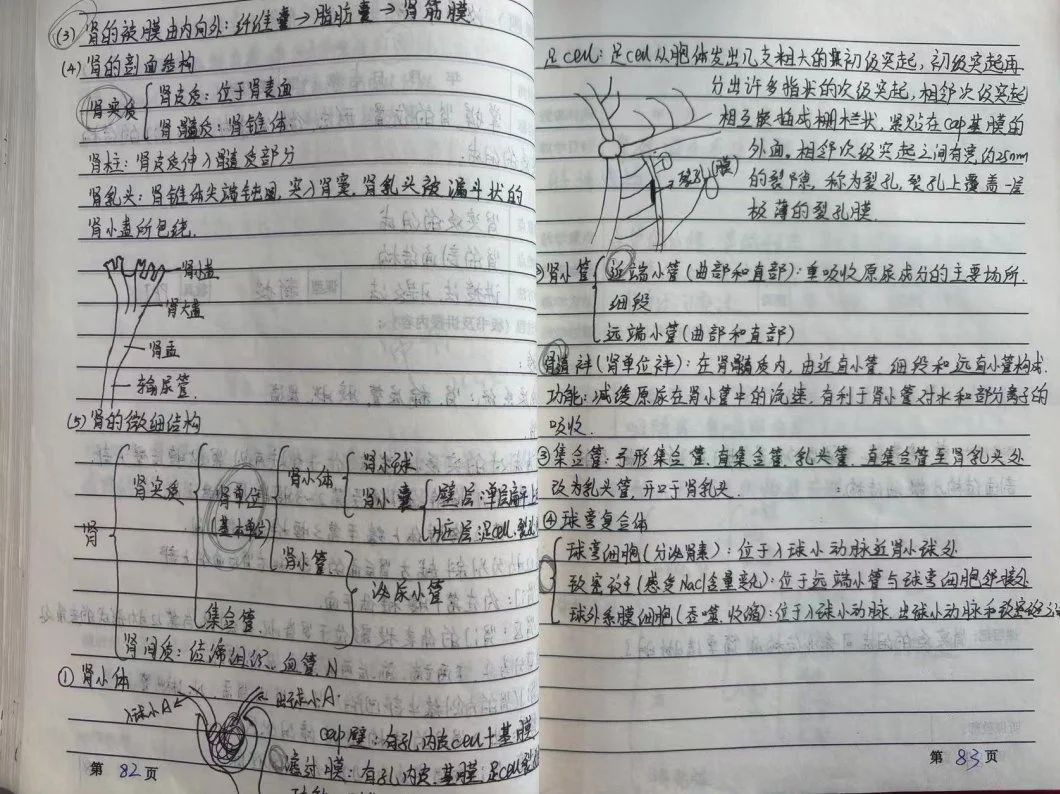 (3) 肾的被膜由内向外：纤维囊→脂肪囊→肾筋膜
(4) 肾的剖面结构
肾实质
肾皮质：位于肾表面
肾髓质：肾锥体.
肾柱：肾皮质伸入髓质部分
肾乳头：肾锥体尖端钝圆，突入肾窦，肾乳头被漏斗状的
肾小盏所包绕.
肾小盏
肾大盏
肾盂
输尿管
(5) 肾的微细结构
肾
肾实质
肾单位
(基本单位)
肾小体
肾小球
肾小囊
壁层：单层扁平上
脏层：足cell，裂孔
肾小管
泌尿小管
集合管
肾间质：结缔组织、血管、N
① 肾小体
入球小A
出球小A.
cap壁：有孔内皮cell+基膜
滤过膜：有孔内皮、基膜、足cell
第 82 页
足cell：足cell从胞体发出几支粗大的初级突起，初级突起再
分出许多指状的次级突起，相邻次级突起
相互嵌插成栅栏状，紧贴在cap基膜的
外面。相邻次级突起之间有宽约25nm
的裂隙，称为裂孔，裂孔上覆盖一层
极薄的裂孔膜.
裂孔(膜)
②肾小管
近端小管(曲部和直部)：重吸收原尿成分的主要场所.
细段
远端小管(曲部和直部)
髓袢(肾单位袢)：在肾髓质内，由近直小管、细段和远直小管构成.
功能：减缓原尿在肾小管中的流速，有利于肾小管对水和部分离子的
吸收.
③集合管：弓形集合管、直集合管、乳头管，直集合管至肾乳头处
改为乳头管，开口于肾乳头.
④球旁复合体
球旁细胞(分泌肾素)：位于入球小动脉近肾小球处
致密斑(感受NaCl含量变化)：位于远端小管与球旁细胞邻接处
球外系膜细胞(吞噬、收缩)：位于入球小动脉、出球小动脉和致密斑之
第 83 页